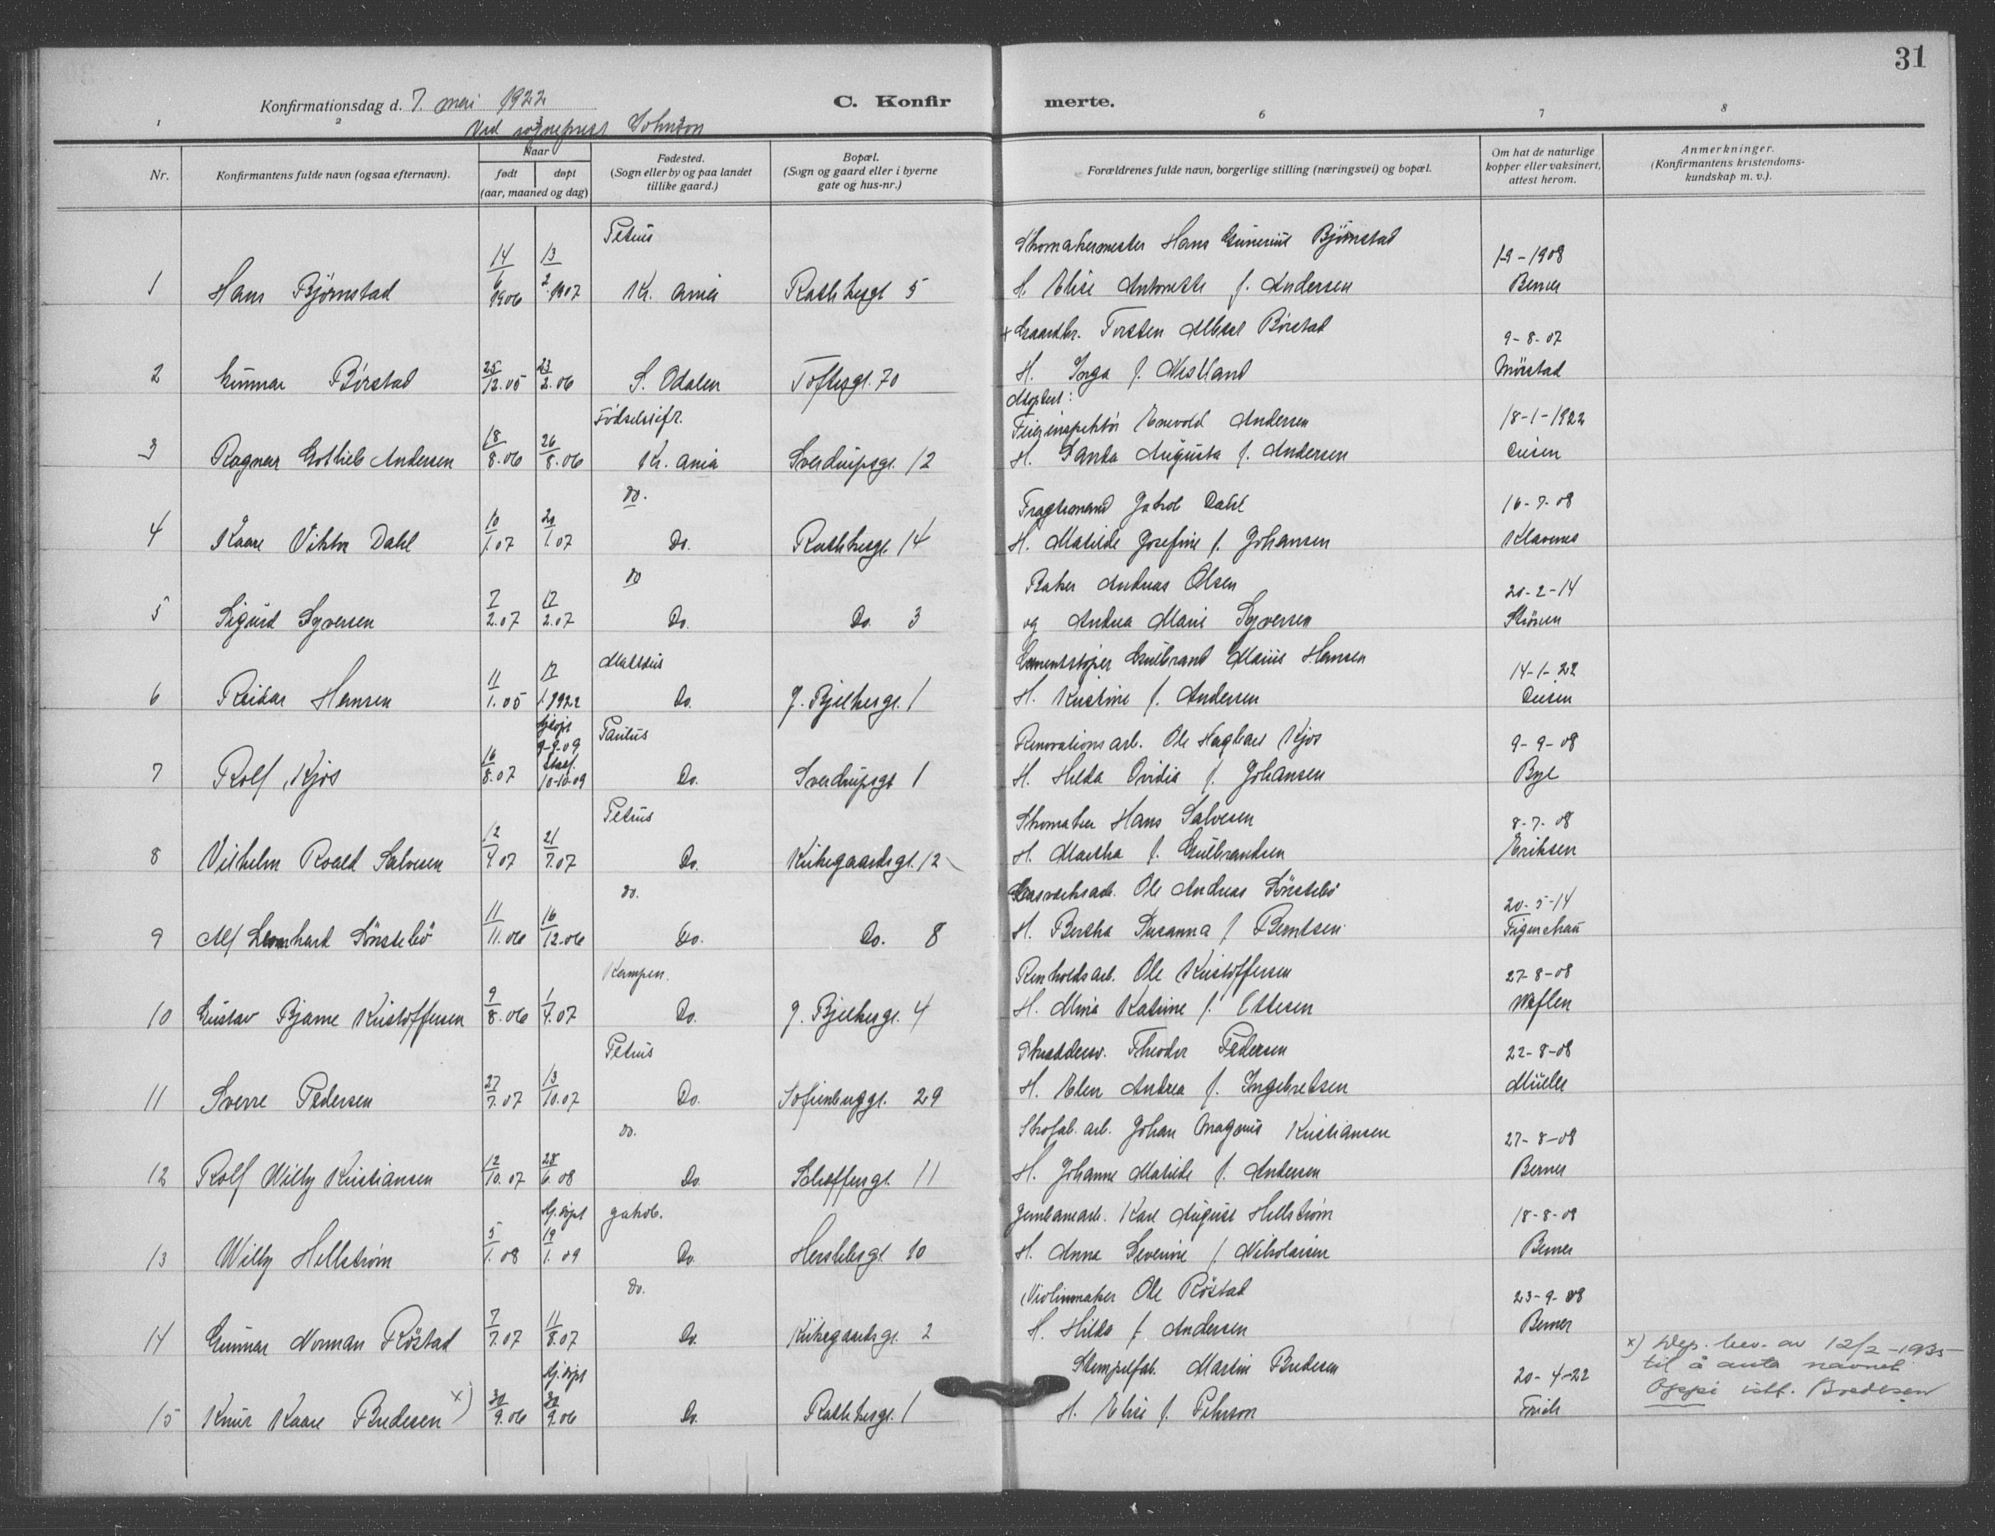 31
Konfirmationsdag d. 7. mai 1922 C. Konfir merte.
Ved sogneprest Johnson
1 2 3 6 7 8
Nr. Konfirmantens fulde navn (ogsaa efternavn). Naar født døpt (aar, maaned og dag) Fødested. (Sogn eller by og paa landet tillike gaard.) Bopæl. (Sogn og gaard eller i byerne gate og hus-nr.) Forældrenes fulde navn, borgerlige stilling (næringsvei) og bopæl. Om hat de naturlige kopper eller vaksinert, attest herom. Anmerkninger. (Konfirmantens kristendoms- kundskap m. v.).
Petrus Skomakermester Hans Gunerius Bjørnstad 1-9-1908
1 Hans Bjørnstad 14/6 1906 13/2 1907 Kr.ania Rathkesgt 5 H. Elise Antonette f. Andersen Berner
x Gaardbr. Torsten Albert Børstad 9-8-07
2 Gunnar Børstad 25/12.05 23/2.06 S. Odalen Toftesgt. 70 H. Inga f. Mørstad
Adoptert:
Fødselsstift. Feierinspektør Enevold Andersen 18-1-1922
3 Ragnar Gotlieb Andersen 18/8.06 26/8.06 Kr.ania Sverdrupsgt. 12 H. Sanda Augusta f. Andersen
do. Fragtemand Jakob Dahl 16-7-08
4 Kaare Viktor Dahl 10/1.07 20/1.07 Do. Rathkesgt. 14 H. Matilde Josefine f. Johansen Klavenes
do Baker Andreas Olsen 20-2-14
5 Sigurd Syversen 7/2.07 17/2.07 Do. Do. 3 og Andrea Marie Syversen
Mattæus Cementstøper Gulbrand Marius Hansen 14-1-22
6 Reidar Hansen 11/1.05 17/1.1922 Do. J. Bjelkesgt. 1 H. Kristine f. Andersen
hjdøpt 9-9-09 Paulus Renovationsarb. Ole Hagbart Kjos 9-9-08
7 Rolf Kjos 16/8.07 10-10-09 Do. Sverdrupsgt 1 H. Hilda Ovidia f. Johansen Bye
Petrus Skomaker Hans Salvesen 8-7-08
8 Vilhelm Roald Salvesen 12/4.07 21/7.07 Do. Kirkegaardsgt. 12 H. Martha f. Gulbrandsen Eriksen
do. Gasverksarb. Ole Andreas Lønstebø 20-5-14
9 Alf Leonhard Lønstebø 11/11.06 16/12.06 Do. Do. 8 H. Bertha Susanna f. Berntsen
Kampen. Renholdsarb. Ole Kristoffersen 27-8-08
10 Gustav Bjarne Kristoffersen 9/8.06 1/4.07 Do. J. Bjelkesgt. 4 H. Mina Katrine f. Ottesen
Petrus Skræddersv. Theodor Pedersen 22-8-08
11 Sverre Pedersen 27/7.07 13/10.07 Do. Sofienberggt. 29 H. Elen Andrea f. Ingebretsen Müller
do. Skofab. arb. Johan Magnus Kristiansen 27-8-08
12 Rolf Willy Kristiansen 12/10.07 28/6.08 Do. Schleppegt. 11 H. Johanne Matilde f. Andersen Berner
hj. døpt Jakob. Jernbanearb. Karl August Hellstrøm 18-8-08
13 Willy Hellstrøm 5/1.08 19/1.09 Do. Herslebsgt. 10 H. Anna Severine f. Nikolaisen Berner
do. Violinmaker Ole Røstad 23-9-08
14 Gunnar Norman Røstad 7/7.07 11/8.07 Do. Kirkegaardsgt. 2 H. Hilda f. Andersen Berner
hj. døpt Stempelfab. Martin Bredesen 20-4-22
15 Knut Kaare Bredesen x) 30/9.06 30/9.06 Do. Rathkesgt. 1 H. Elise f. Pehrson
x) Dep. bev. av 12/2-1935
til å anta navnet
Oppi istf. Bredesen